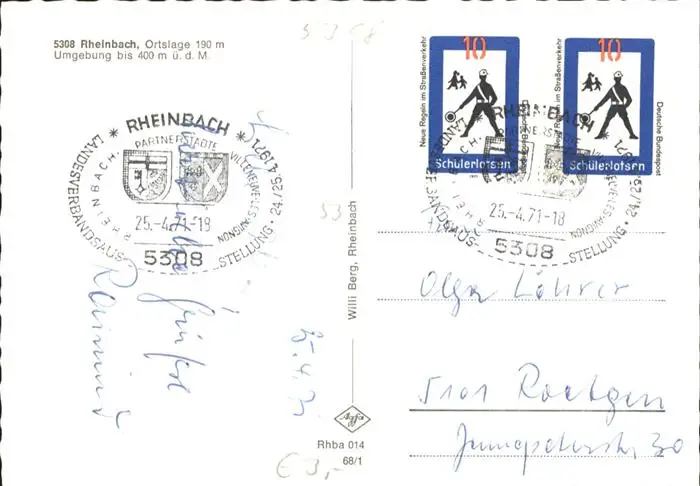 5308 Rheinbach, Ortslage 190 m
Umgebung bis 400 m ü. d. M.
RHEINBACH
PARTNERSTÄDTE
RHEINBACH
VILLENEUVE-LÈS-AVIGNON
LANDESVERBANDSAUSSTELLUNG · 24./25.4.1971
25.-4.71-18
5308
Grüße
25.4.71
Willi Berg, Rheinbach
Agfa
Rhba 014
68/1
€ 3,-
53
Neue Regeln im Straßenverkehr
10
Schülerlotsen
Neue Regeln im Straßenverkehr
10
Schülerlotsen
Deutsche Bundespost
RHEINBACH
25.-4.71-18
5308
Olga Löhrer
5101 Roetgen